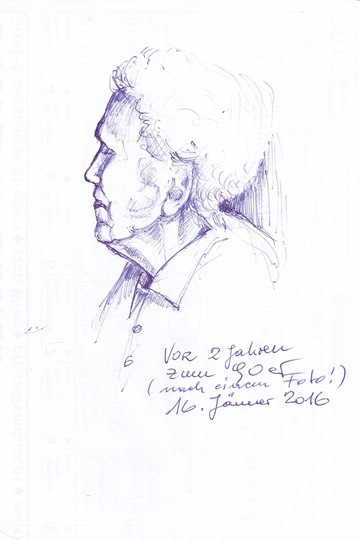 Vor 2 Jahren
zum 90er
(nach einem Foto!)
16. Jänner 2016